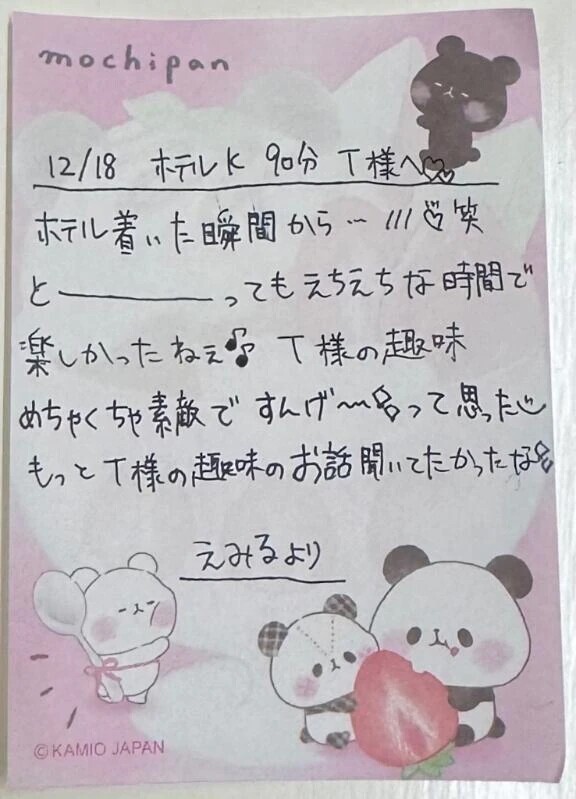 mochipan
12/18 ホテルK 90分 T様へ♡♡
ホテル着いた瞬間から… ///♡笑
と――――ってもえちえちな時間で
楽しかったねぇ♪♪ T様の趣味
めちゃくちゃ素敵ですんげ〜って思った
もっとT様の趣味のお話聞いてたかったな
えみるより
©KAMIO JAPAN